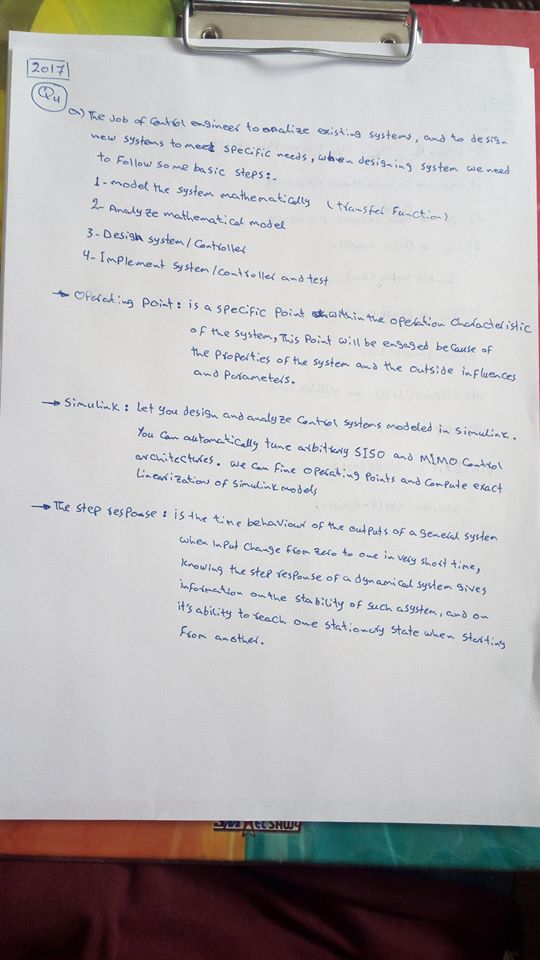 2017
Q4
a) The Job of Control engineer to analize existing systems, and to design
new systems to meet specific needs, when designing system we need
to follow some basic steps:-
1- model the system mathematically (transfer Function)
2- Analyze mathematical model
3- Design system/Controller
4- Implement system/controller and test
→ Operating Point: is a specific Point within the operation characteristic
of the system, This Point will be engaged because of
the Properties of the system and the outside influences
and Parameters.
→ Simulink: Let you design and analyze Control systems modeled in Simulink.
You Can automatically tune arbitrary SISO and MIMO Control
architectures. we can fine operating Points and Compute exact
Linearization of simulink models
→ The step response: is the time behaviour of the outputs of a general system
when Input change from zero to one in very short time,
knowing the step response of a dynamical system gives
information on the stability of such a system, and on
it's ability to reach one stationary state when starting
From another.
EL SAWY